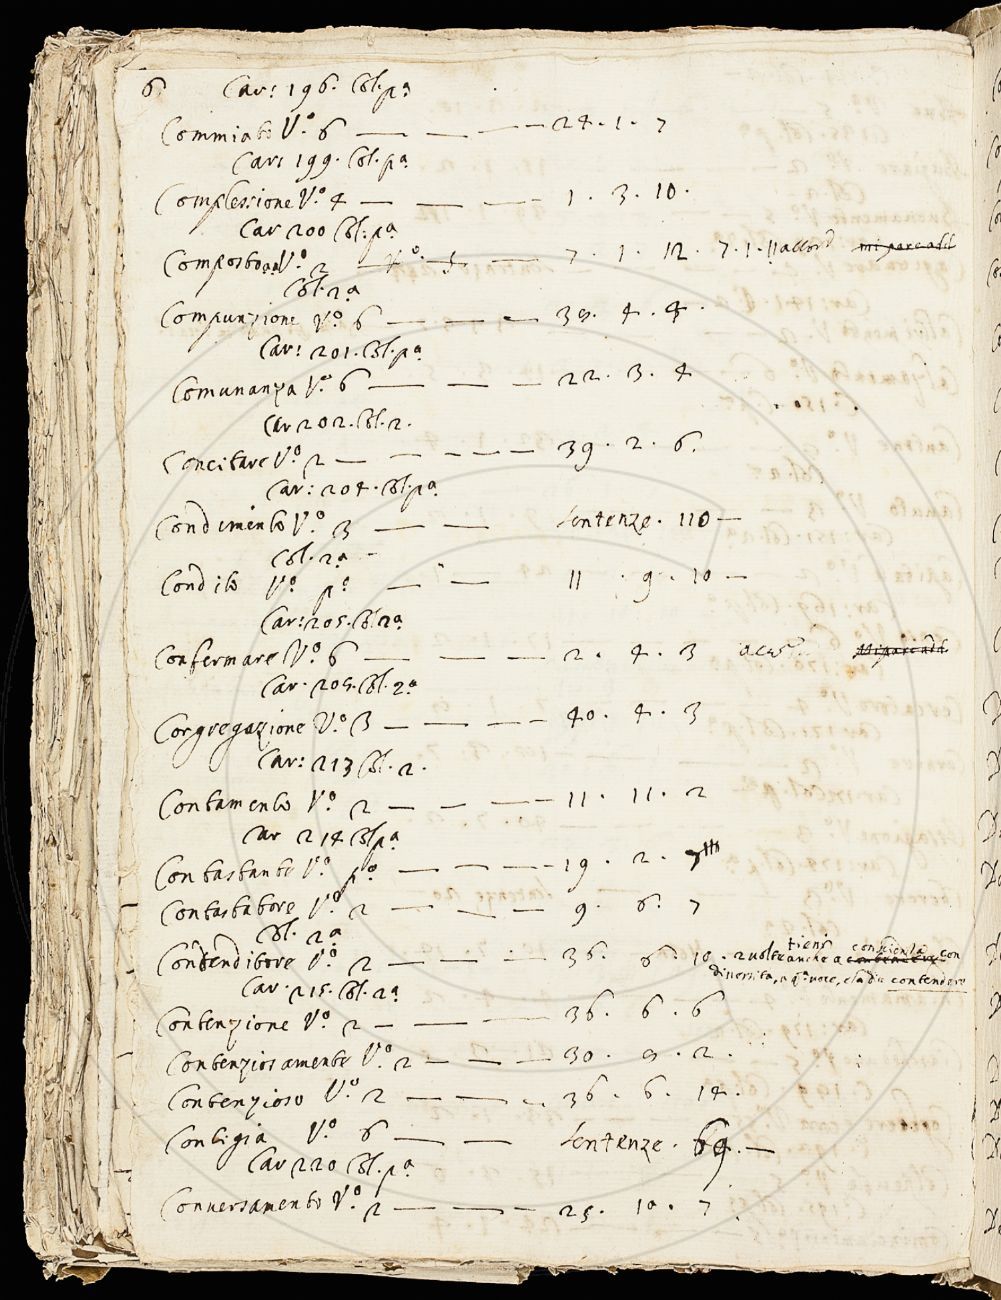 6 Car: 196. Col. pa
Commiato Vo. 6 — — — 24. 1. 7
Car: 199. Col. pa
Complessione Vo. 4 — — — 1. 3. 10.
Car 200 Col. pa
Composto Vo. 2 — — 7. 1. 12. 7. 1. 11
Col. 2a
Compunzione Vo. 6 — — — 39. 4. 4.
Car: 201. Col. pa
Comunanza Vo. 6 — — — 22. 3. 4
Car 202. Col. 2.
Concitare Vo. 2 — — — — — 39. 2. 6.
Car: 204. Col. pa
Condimento Vo. 3 — — Sentenze. 110 —
Col. 2a —
Condito Vo. po — — 11. 9. 10 —
Car: 205. Col. 2a
Confermare Vo. 6 — — — 2. 4. 3
Car. 209. Col. 2a
Congregazione Vo. 3 — — — — 40. 4. 3
Car: 213 Col. 2.
Contamento Vo. 2 — — — — 11. 11. 2
Car 214 Col pa
Contastante Vo. po — — — — 19. 2.
Contastatore Vo. 2 — — — — 9. 6. 7
Col. 2a
Contenditore Vo. 2 — — — — 36. 6. 10. 2 volte anche a con
diversità, a qa voce, e la dic contendere
Car. 215. Col. 2a
Contenzione Vo. 2 — — — — 36. 6. 6
Contenziosamente Vo. 2 — — — 30. 9. 2.
Contenzioso Vo. 2 — — — 36. 6. 14.
Contigia Vo. 6 — — — Sentenze. 69. —
Car 220 Col. pa
Conversamento Vo. 2 — — — 25. 10. 7.